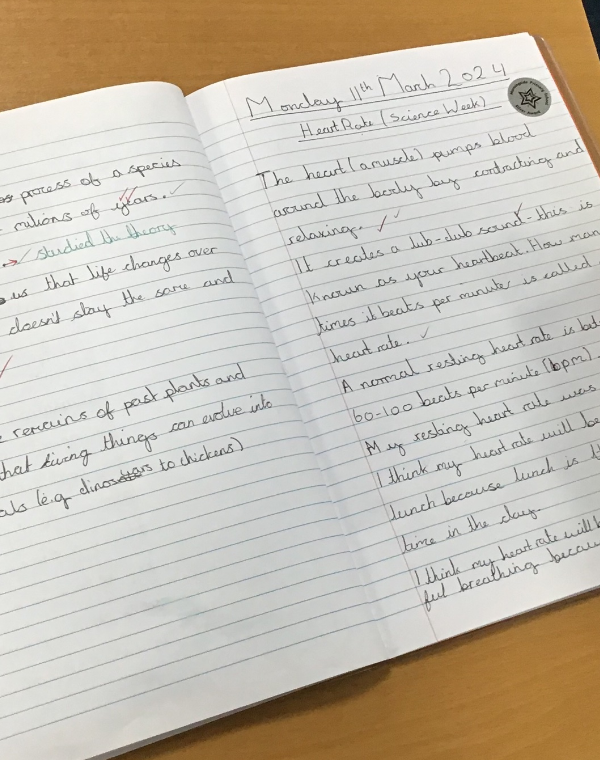 process of a species
milions of years.
studied the theory
us that life changes over
doesn't stay the same and
remains of past plants and
that living things can evolve into
(e.g dinosaurs to chickens)
Monday 11th March 2024
Heart Rate (Science Week)
The heart (a muscle) pumps blood
around the body by contracting and
relaxing.
It creates a lub-dub sound - this is
known as your heartbeat. How man
times it beats per minute is called
heart rate.
A normal resting heart rate is bet
60-100 beats per minute (bpm).
My resting heart rate was
I think my heart rate will be
lunch because lunch is
time in the day.
I think my heart rate will b
ful breathing becau